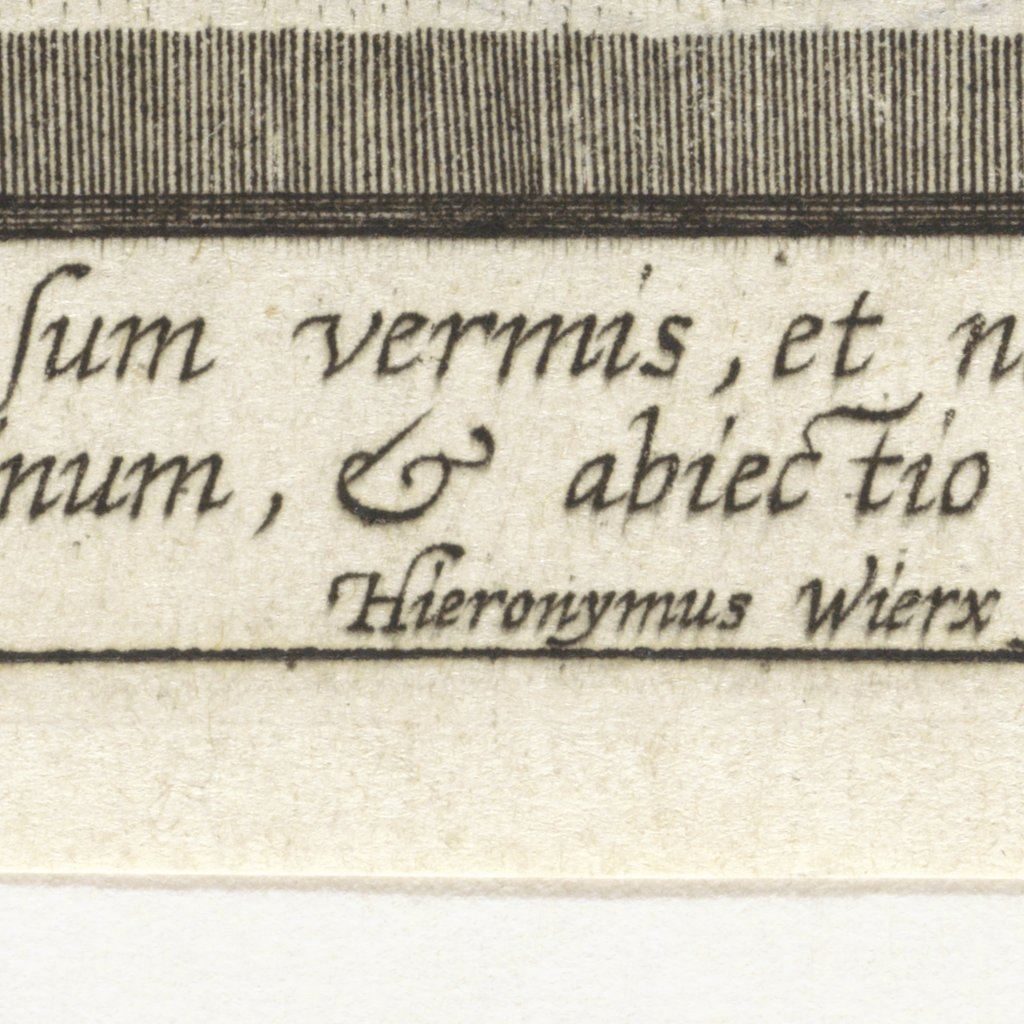 sum vermis, et n
num, & abiectio
Hieronymus Wierx